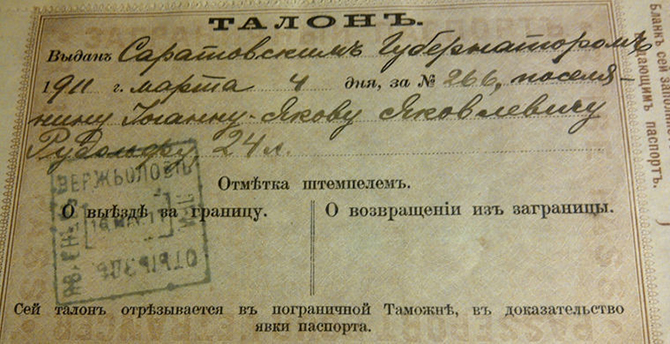 ТАЛОНЪ.
Выданъ Саратовскимъ Губернаторомъ
1911 г. марта 4 дня, за № 266, поселя-
нину Іоганну-Якову Яковлевичу
Рудольфу, 24 л.
ВЕРЖБОЛОВО
ОТЪѢЗДЪ
Отмѣтка штемпелемъ.
О выѣздѣ за границу.
О возвращеніи изъ заграницы.
Сей талонъ отрѣзывается въ пограничной Таможнѣ, въ доказательство
явки паспорта.
Бланкъ сей
дающимъ паспортъ.